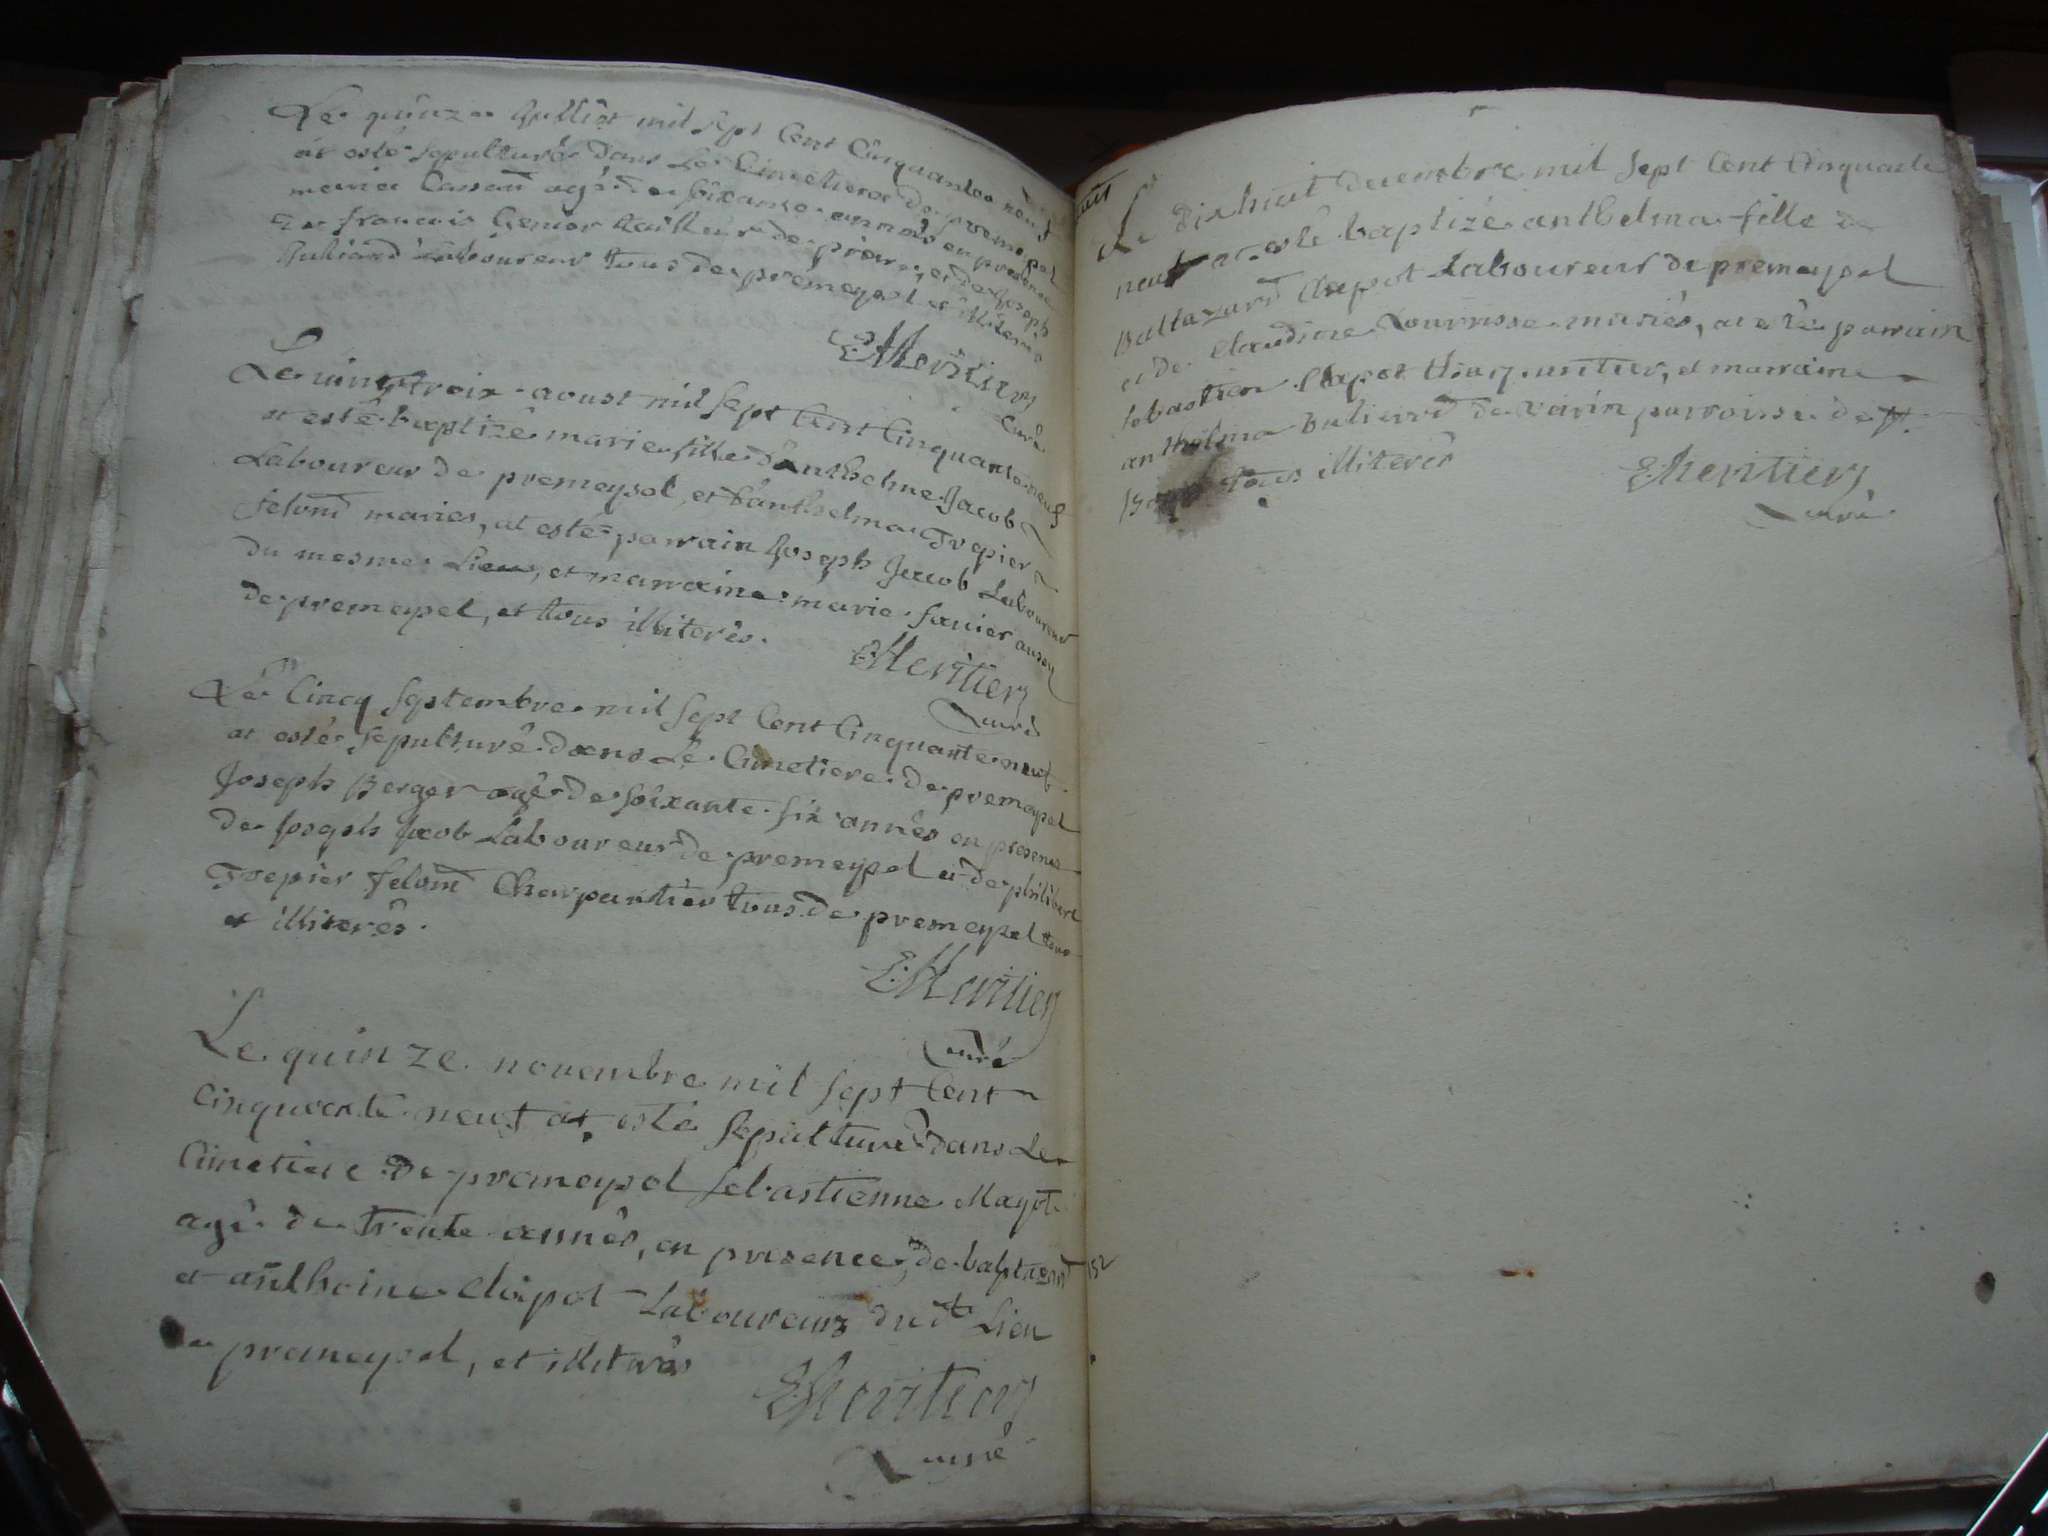 Le quinze Julliet mil sept Cent Cinquante neuf
at esté sepulturé dans Le Cimetiere de premeyzel
agé de soixante années en presence
de francois tailleur de piere, et de Joseph
Juliand Laboureur tous de premeyzel et illiterés
E: Heritier
Curé
Le vingt trois aoust mil sept Cent Cinquante neuf
at esté baptizée marie fille d'anthelme Jacob
Laboureur de premeyzel, et d'anthelma Trepier
felond mariés, at esté parrain Joseph Jacob Laboureur
du mesme Lieu, et marraine marie aussy
de premeyzel, et tous illiterés.
E: Heritier
Curé
Le Cincq septembre mil sept Cent Cinquante neuf
at esté sepulturé dans Le Cimetiere de premeyzel
Joseph Berger agé de soixante six années en presence
de Joseph Jacob Laboureur de premeyzel et de philibert
Trepier felond Charpantier tous de premeyzel
et illiterés.
E: Heritier
Curé
Le quinze novembre mil sept Cent
Cinquante neuf at esté sepulturé dans Le
Cimetiere de premeyzel sebastienne Magot
agé de trente années, en presence de
et anthoine Clapot Laboureurs dudt Lieu
de premeyzel, et illiterés
E: heritier
Curé
Le dixhuit decembre mil sept Cent Cinquante
neuf at esté baptizée anthelma fille de
Baltazard Clapot Laboureur de premeyzel
et de Claudine mariés, at esté parrain
sebastien Clapot Charpantier, et marraine
anthelma de parroisse de
tous illiterés
E: heritier
Curé